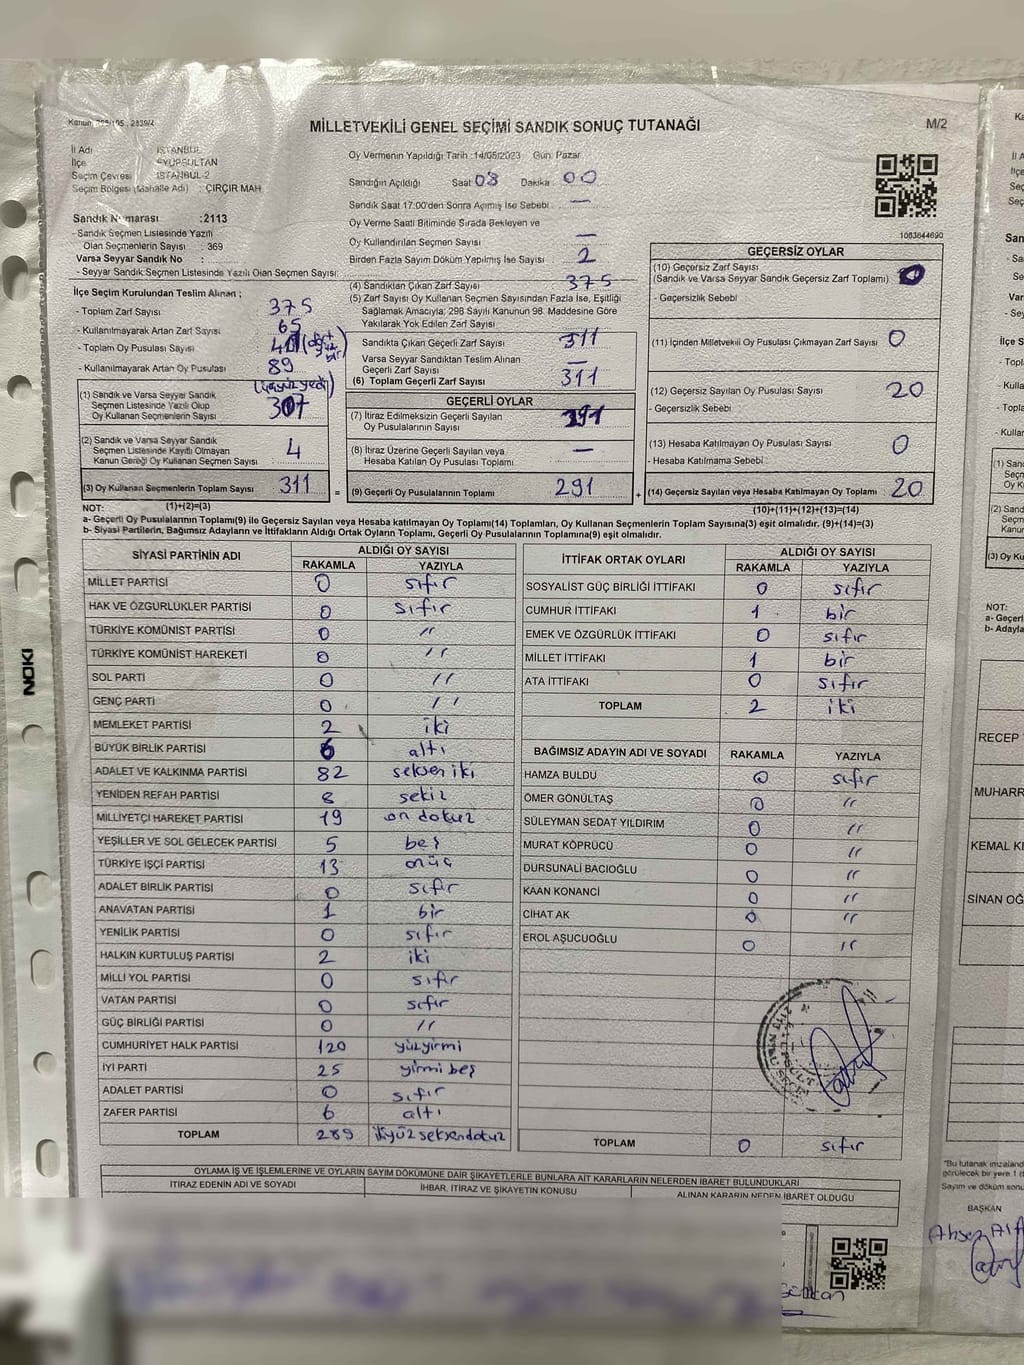 MİLLETVEKİLİ GENEL SEÇİMİ SANDIK SONUÇ TUTANAĞI
M/2
İl Adı : İSTANBUL
İlçe : EYÜPSULTAN
Seçim Çevresi : İSTANBUL-2
Seçim Bölgesi (Mahalle Adı) : ÇIRÇIR MAH
Sandık Numarası : 2113
- Sandık Seçmen Listesinde Yazılı
Olan Seçmenlerin Sayısı : 369
Varsa Seyyar Sandık No :
- Seyyar Sandık Seçmen Listesinde Yazılı Olan Seçmen Sayısı:
Oy Vermenin Yapıldığı Tarih :14/05/2023 Gün: Pazar
Sandığın Açıldığı Saat 08 Dakika 00
Sandık Saat 17:00'den Sonra Açılmış İse Sebebi : —
Oy Verme Saati Bitiminde Sırada Bekleyen ve
Oy Kullandırılan Seçmen Sayısı —
Birden Fazla Sayım Döküm Yapılmış İse Sayısı 2
1083644690
İlçe Seçim Kurulundan Teslim Alınan ;
- Toplam Zarf Sayısı 375
- Kullanılmayarak Artan Zarf Sayısı 65
- Toplam Oy Pusulası Sayısı
- Kullanılmayarak Artan Oy Pusulası 89
(1) Sandık ve Varsa Seyyar Sandık
Seçmen Listesinde Yazılı Olup
Oy Kullanan Seçmenlerin Sayısı 307
(2) Sandık ve Varsa Seyyar Sandık
Seçmen Listesinde Kayıtlı Olmayan
Kanun Gereği Oy Kullanan Seçmen Sayısı 4
(3) Oy Kullanan Seçmenlerin Toplam Sayısı 311
(4) Sandıktan Çıkan Zarf Sayısı 375
(5) Zarf Sayısı Oy Kullanan Seçmen Sayısından Fazla İse, Eşitliği
Sağlamak Amacıyla; 298 Sayılı Kanunun 98. Maddesine Göre
Yakılarak Yok Edilen Zarf Sayısı
Sandıkta Çıkan Geçerli Zarf Sayısı 311
Varsa Seyyar Sandıktan Teslim Alınan
Geçerli Zarf Sayısı —
(6) Toplam Geçerli Zarf Sayısı 311
GEÇERLİ OYLAR
(7) İtiraz Edilmeksizin Geçerli Sayılan
Oy Pusulalarının Sayısı 291
(8) İtiraz Üzerine Geçerli Sayılan veya
Hesaba Katılan Oy Pusulası Toplamı —
= (9) Geçerli Oy Pusulalarının Toplamı 291
GEÇERSİZ OYLAR
(10) Geçersiz Zarf Sayısı
(Sandık ve Varsa Seyyar Sandık Geçersiz Zarf Toplamı)
- Geçersizlik Sebebi
(11) İçinden Milletvekili Oy Pusulası Çıkmayan Zarf Sayısı 0
(12) Geçersiz Sayılan Oy Pusulası Sayısı 20
- Geçersizlik Sebebi
(13) Hesaba Katılmayan Oy Pusulası Sayısı 0
- Hesaba Katılmama Sebebi :
+ (14) Geçersiz Sayılan veya Hesaba Katılmayan Oy Toplamı 20
NOT: (1)+(2)=(3) (10)+(11)+(12)+(13)=(14)
a- Geçerli Oy Pusulasının Toplamı(9) ile Geçersiz Sayılan veya Hesaba katılmayan Oy Toplamı(14) Toplamları, Oy Kullanan Seçmenlerin Toplam Sayısına(3) eşit olmalıdır. (9)+(14)=(3)
b- Siyasi Partilerin, Bağımsız Adayların ve İttifakların Aldığı Ortak Oyların Toplamı, Geçerli Oy Pusulalarının Toplamına(9) eşit olmalıdır.
SİYASİ PARTİNİN ADI ALDIĞI OY SAYISI
RAKAMLA YAZIYLA
MİLLET PARTİSİ 0 sıfır
HAK VE ÖZGÜRLÜKLER PARTİSİ 0 sıfır
TÜRKİYE KOMÜNİST PARTİSİ 0 "
TÜRKİYE KOMÜNİST HAREKETİ 0 "
SOL PARTİ 0 "
GENÇ PARTİ 0 "
MEMLEKET PARTİSİ 2 iki
BÜYÜK BİRLİK PARTİSİ 6 altı
ADALET VE KALKINMA PARTİSİ 82 seksen iki
YENİDEN REFAH PARTİSİ 8 sekiz
MİLLİYETÇİ HAREKET PARTİSİ 19 on dokuz
YEŞİLLER VE SOL GELECEK PARTİSİ 5 beş
TÜRKİYE İŞÇİ PARTİSİ 13 onüç
ADALET BİRLİK PARTİSİ 0 sıfır
ANAVATAN PARTİSİ 1 bir
YENİLİK PARTİSİ 0 sıfır
HALKIN KURTULUŞ PARTİSİ 2 iki
MİLLİ YOL PARTİSİ 0 sıfır
VATAN PARTİSİ 0 sıfır
GÜÇ BİRLİĞİ PARTİSİ 0 "
CUMHURİYET HALK PARTİSİ 120 yüzyirmi
İYİ PARTİ 25 yirmi beş
ADALET PARTİSİ 0 sıfır
ZAFER PARTİSİ 6 altı
TOPLAM 289 ikiyüz seksendokuz
İTTİFAK ORTAK OYLARI ALDIĞI OY SAYISI
RAKAMLA YAZIYLA
SOSYALİST GÜÇ BİRLİĞİ İTTİFAKI 0 sıfır
CUMHUR İTTİFAKI 1 bir
EMEK VE ÖZGÜRLÜK İTTİFAKI 0 sıfır
MİLLET İTTİFAKI 1 bir
ATA İTTİFAKI 0 sıfır
TOPLAM 2 iki
BAĞIMSIZ ADAYIN ADI VE SOYADI RAKAMLA YAZIYLA
HAMZA BULDU 0 sıfır
ÖMER GÖNÜLTAŞ 0 "
SÜLEYMAN SEDAT YILDIRIM 0 "
MURAT KÖPRÜCÜ 0 "
DURSUNALİ BACIOĞLU 0 "
KAAN KONANCİ 0 "
CİHAT AK 0 "
EROL AŞUCUOĞLU 0 "
TOPLAM 0 sıfır
OYLAMA İŞ VE İŞLEMLERİNE VE OYLARIN SAYIM DÖKÜMÜNE DAİR ŞİKAYETLERLE BUNLARA AİT KARARLARIN NELERDEN İBARET BULUNDUKLARI
İTİRAZ EDENİN ADI VE SOYADI İHBAR, İTİRAZ VE ŞİKAYETİN KONUSU ALINAN KARARIN NEDEN İBARET OLDUĞU
NOKI
RECEP
MUHARR
KEMAL KI
SİNAN OĞ
NOT:
a- Geçeri
b- Adayla
BAŞKAN